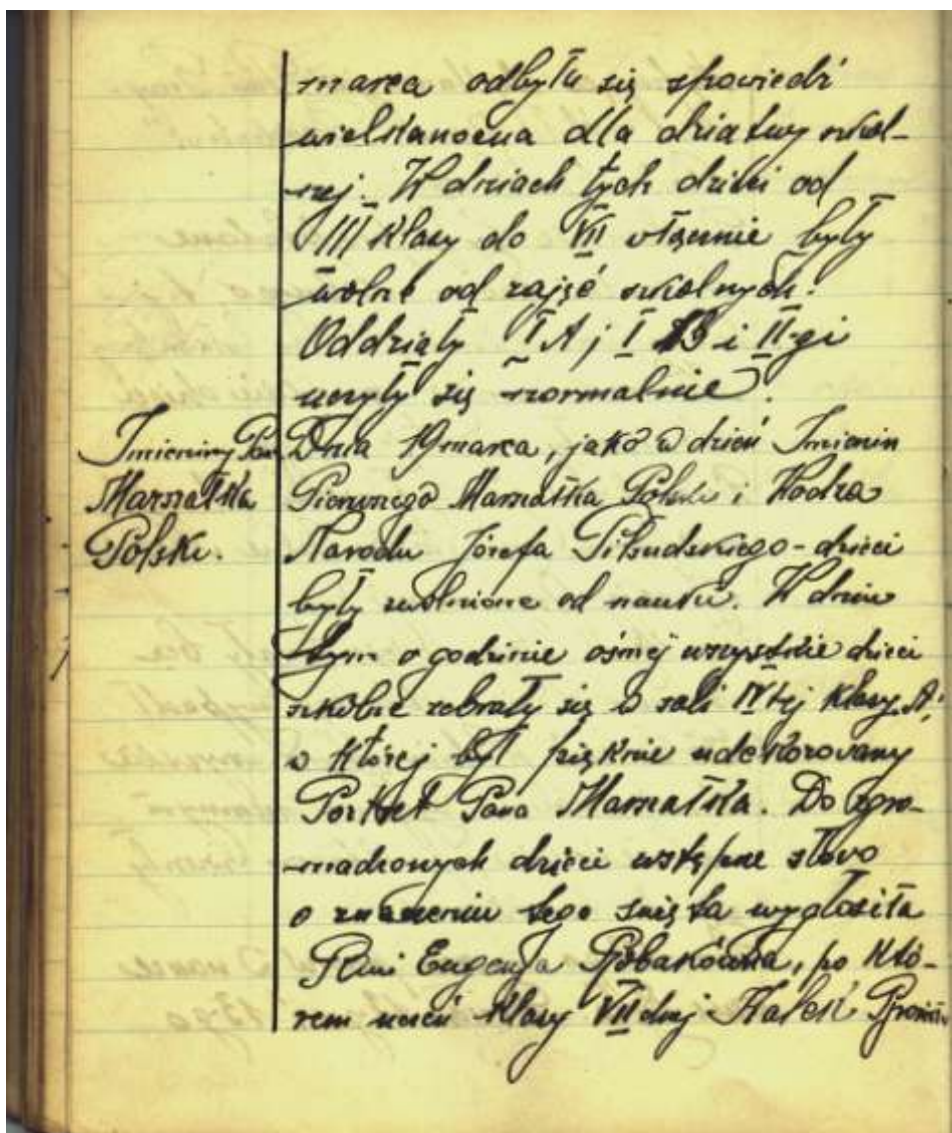 marca odbyła się spowiedź
wielkanocna dla dziatwy szkol-
nej. W dniach tych dzieci od
III klasy do VII włącznie były
wolne od zajęć szkolnych.
Oddziały I A; I B i II-gi
uczyły się normalnie.
Imieniny Pana
Marszałka
Polski.
Dnia 19 marca, jako w dzień Imienin
Pierwszego Marszałka Polski i Wodza
Narodu Józefa Piłsudskiego - dzieci
były zwolnione od nauki. W dniu
tym o godzinie ósmej wszystkie dzieci
szkolne zebrały się w sali IV tej klasy A,
w której był pięknie udekorowany
Portret Pana Marszałka. Do zgro-
madzonych dzieci wstępne słowo
o znaczeniu tego święta wygłosiła
Pani Eugenja, po któ-
rem uczeń klasy VII dmej